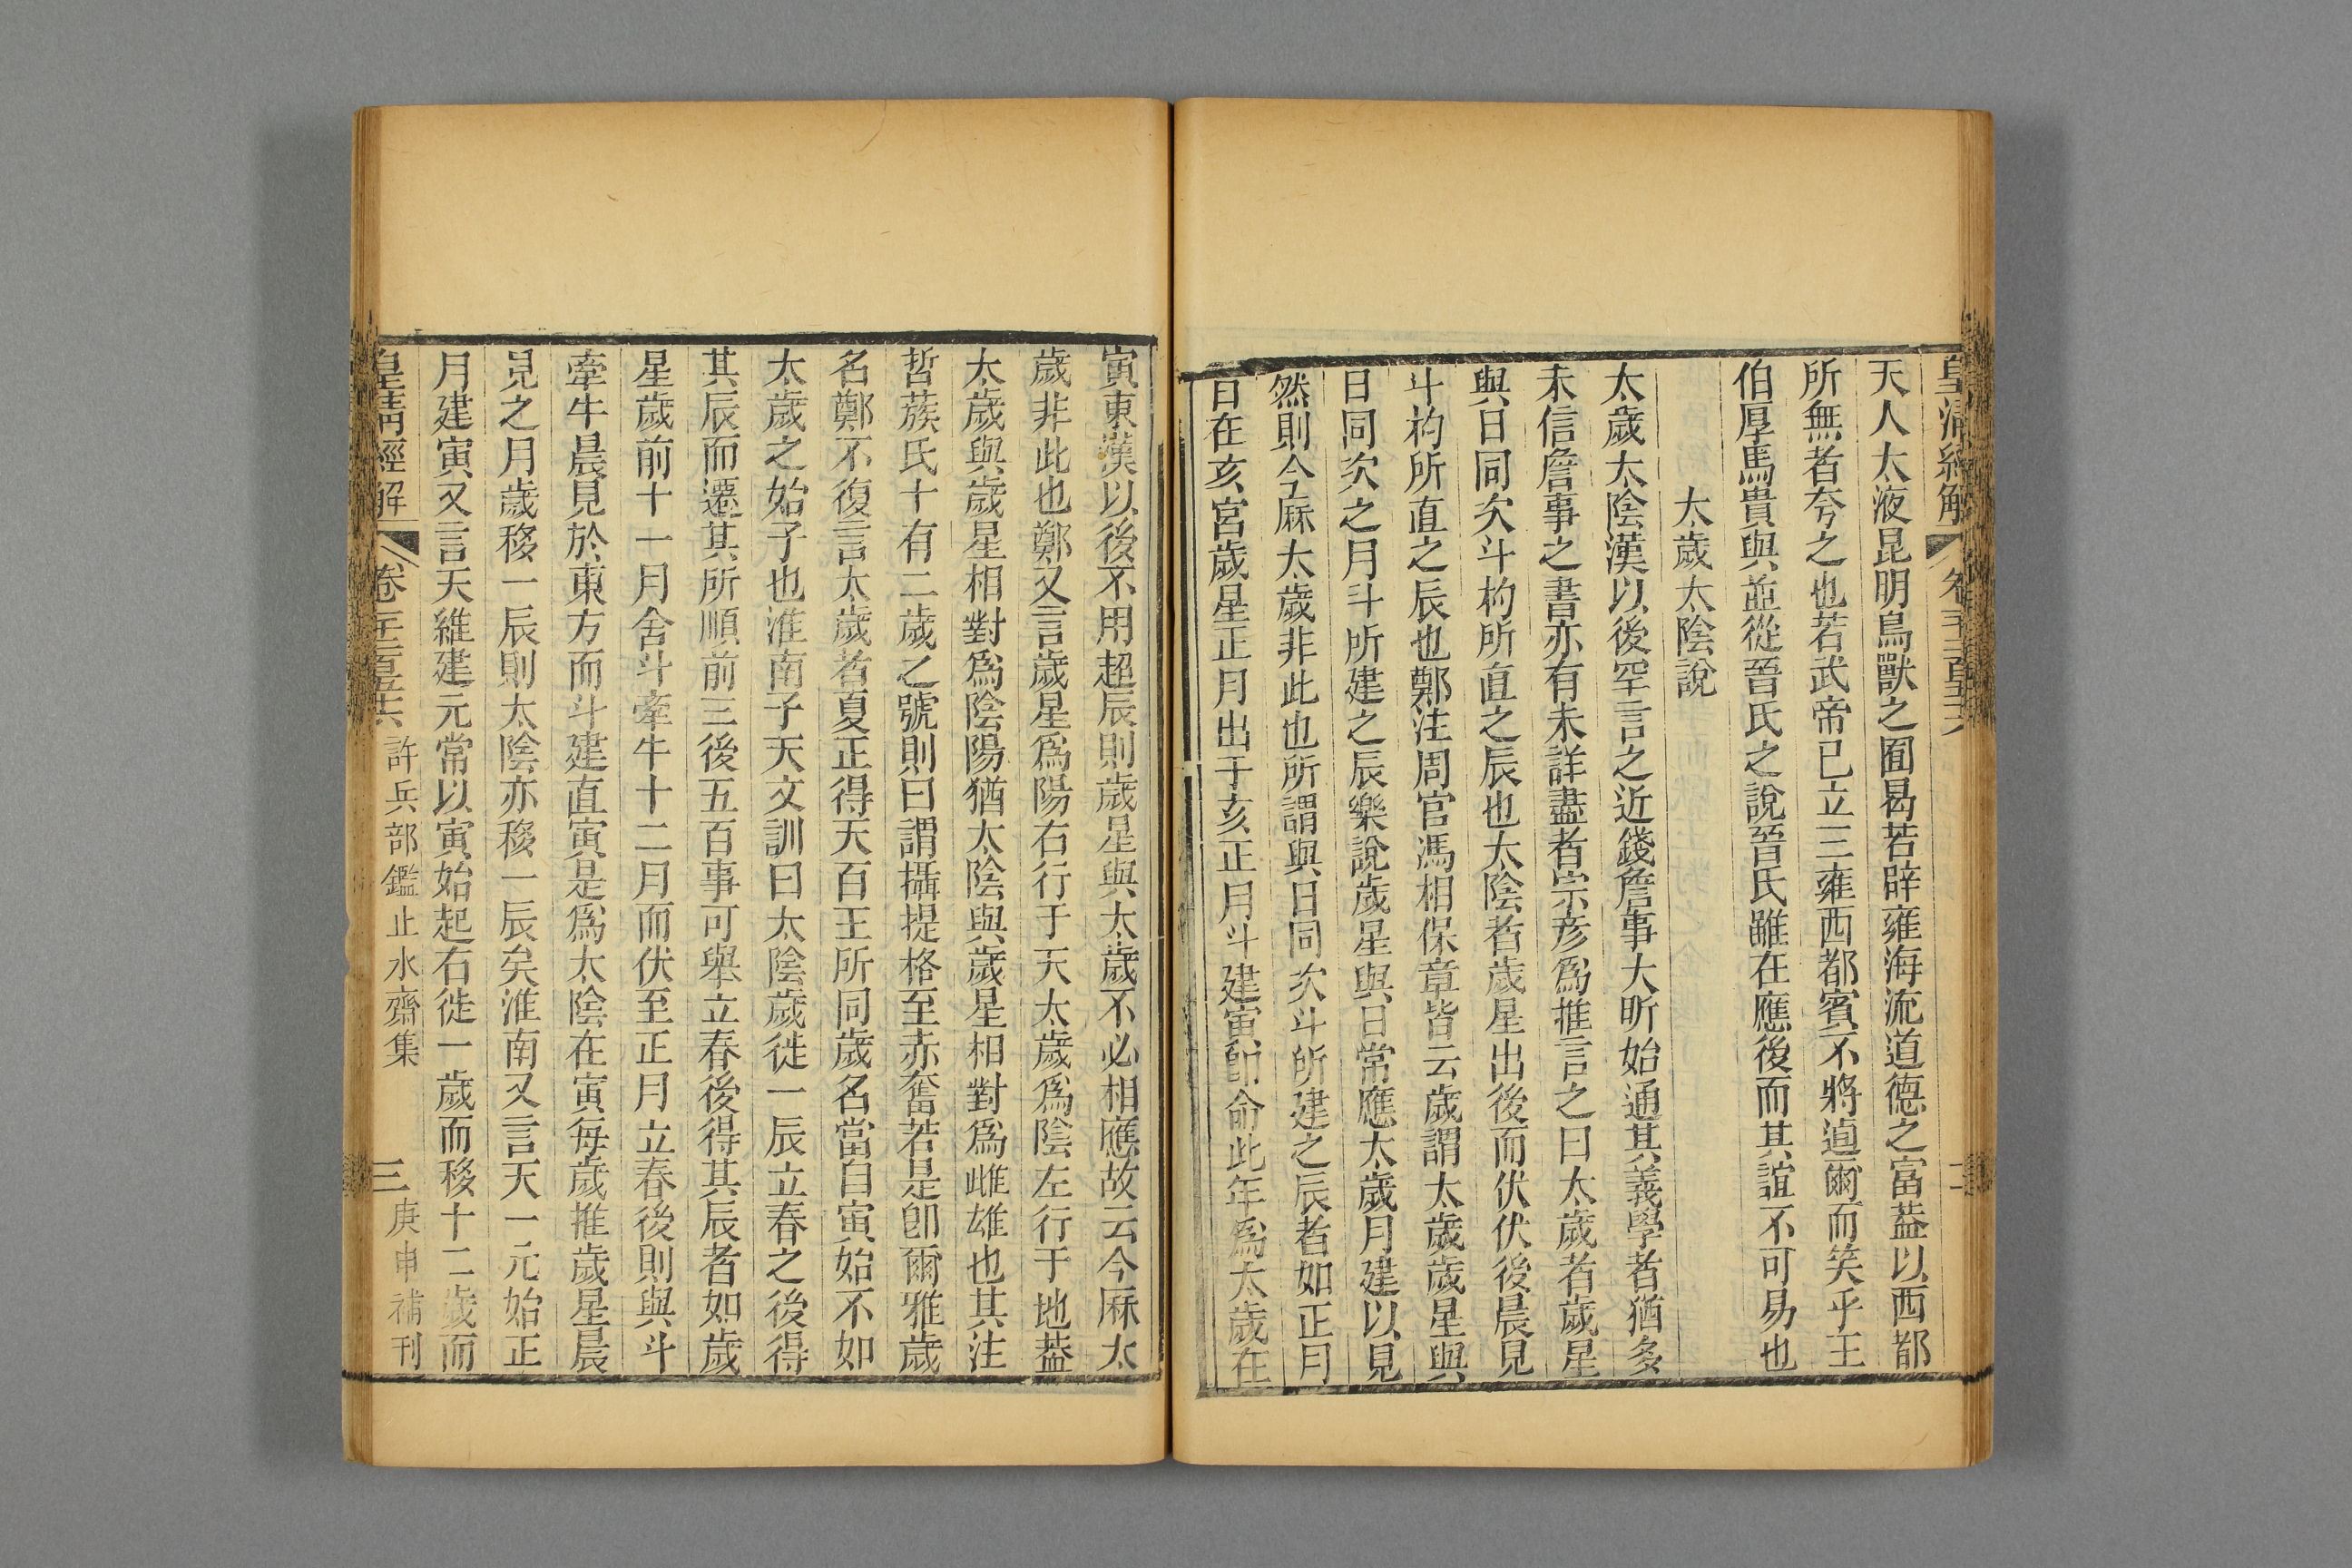 皇清經解
天人太液昆明鳥獸之囿曷若辟雍海流道德之富葢以西都
所無者夸之也若武帝已立三雍西都賓不將逌爾而笑乎王
伯厚馬貴與並從晉氏之說晉氏雖在應後而其誼不可易也
太歲太陰說
太歲太陰漢以後罕言之近錢詹事大昕始通其義學者猶多
未信詹事之書亦有未詳盡者宗彥爲推言之曰太歲者歲星
與日同次斗杓所直之辰也太陰者歲星出後而伏伏後晨見
斗杓所直之辰也鄭注周官馮相保章皆云歲謂太歲歲星與
日同次之月斗所建之辰樂說歲星與日常應太歲月建以見
然則今厤太歲非此也所謂與日同次斗所建之辰者如正月
日在亥宮歲星正月出于亥正月斗建寅卽命此年爲太歲在
寅東漢以後不用超辰則歲星與太歲不必相應故云今厤太
歲非此也鄭又言歲星爲陽右行于天太歲爲陰左行于地葢
太歲與歲星相對爲陰陽猶太陰與歲星相對爲雌雄也其注
哲蔟氏十有二歲之號則曰謂攝提格至赤奮若是卽爾雅歲
名鄭不復言太歲者夏正得天百王所同歲名當自寅始不如
太歲之始子也淮南子天文訓曰太陰歲徙一辰立春之後得
其辰而遷其所順前三後五百事可舉立春後得其辰者如歲
星歲前十一月舍斗牽牛十二月而伏至正月立春後則與斗
牽牛晨見於東方而斗建直寅是爲太陰在寅每歲推歲星晨
見之月歲移一辰則太陰亦移一辰矣淮南又言天一元始正
月建寅又言天維建元常以寅始起右徙一歲而移十二歲而
皇清經解
許兵部鑑止水齋集
三
庚申補刊